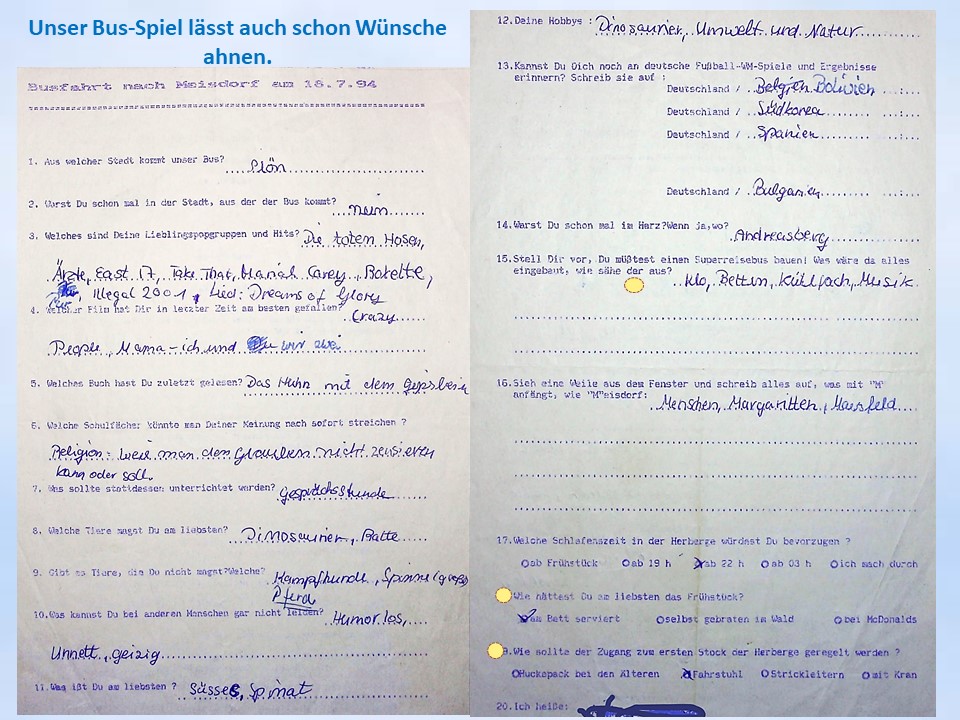 Unser Bus-Spiel lässt auch schon Wünsche
ahnen.
Busfahrt nach Meisdorf am 18.7.94
1. Aus welcher Stadt kommt unser Bus? Plön
2. Warst Du schon mal in der Stadt, aus der der Bus kommt? nein
3. Welches sind Deine Lieblingspopgruppen und Hits? Die toten Hosen,
Ärzte, East 17, Take That, Mariah Carey, Roxette,
Illegal 2001, Lied: Dreams of Glory
4. Welcher Film hat Dir in letzter Zeit am besten gefallen? Crazy
People, Mama-ich und wir zwei
5. Welches Buch hast Du zuletzt gelesen? Das Huhn mit dem Gipsbein
6. Welche Schulfächer könnte man Deiner Meinung nach sofort streichen ?
Religion: weil man den Glauben nicht zensieren
kann oder soll.
7. Was sollte stattdessen unterrichtet werden? Gesprächsstunde
8. Welche Tiere magst Du am liebsten? Dinosaurier, Ratte
9. Gibt es Tiere, die Du nicht magst?Welche? Kampfhunde, Spinne (große)
Pferd
10.Was kannst Du bei anderen Menschen gar nicht leiden? Humorlos,
Unnett, geizig
11.Was ißt Du am liebsten ? Süsses, Spinat
12.Deine Hobbys : Dinosaurier, Umwelt und Natur
13.Kannst Du Dich noch an deutsche Fußball-WM-Spiele und Ergebnisse
erinnern? Schreib sie auf :
Deutschland / Belgien Bolivien :
Deutschland / Südkorea :
Deutschland / Spanien :
Deutschland / Bulgarien :
14.Warst Du schon mal im Harz?Wenn ja,wo? Andreasberg
15.Stell Dir vor, Du müßtest einen Superreisebus bauen! Was wäre da alles
eingebaut, wie sähe der aus? Klo, Betten, Kühlfach, Musik
16.Sieh eine Weile aus dem Fenster und schreib alles auf, was mit "M"
anfängt, wie "M"eisdorf: Menschen, Margaritten, Maisfeld
17.Welche Schlafenszeit in der Herberge würdest Du bevorzugen ?
ab Frühstück ab 19 h ab 22 h ab 03 h ich mach durch
Wie hättest Du am liebsten das Frühstück?
am Bett serviert selbst gebraten im Wald bei McDonalds
9.Wie sollte der Zugang zum ersten Stock der Herberge geregelt werden ?
Huckepack bei den Älteren Fahrstuhl Strickleitern mit Kran
20.Ich heiße: